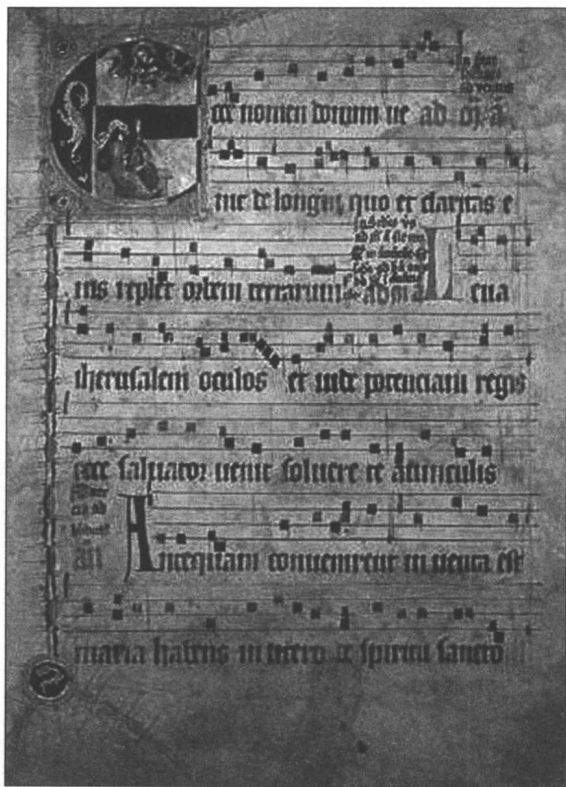 Ecce nomen domini ue
nit de longinquo et claritas e
ius replet orbem terrarum Leua
iherusalem oculos et uide potenciam regis
ecce saluator uenit soluere te a uinculis
Antequam conuenirent inuenta est
maria habens in utero de spiritu sancto